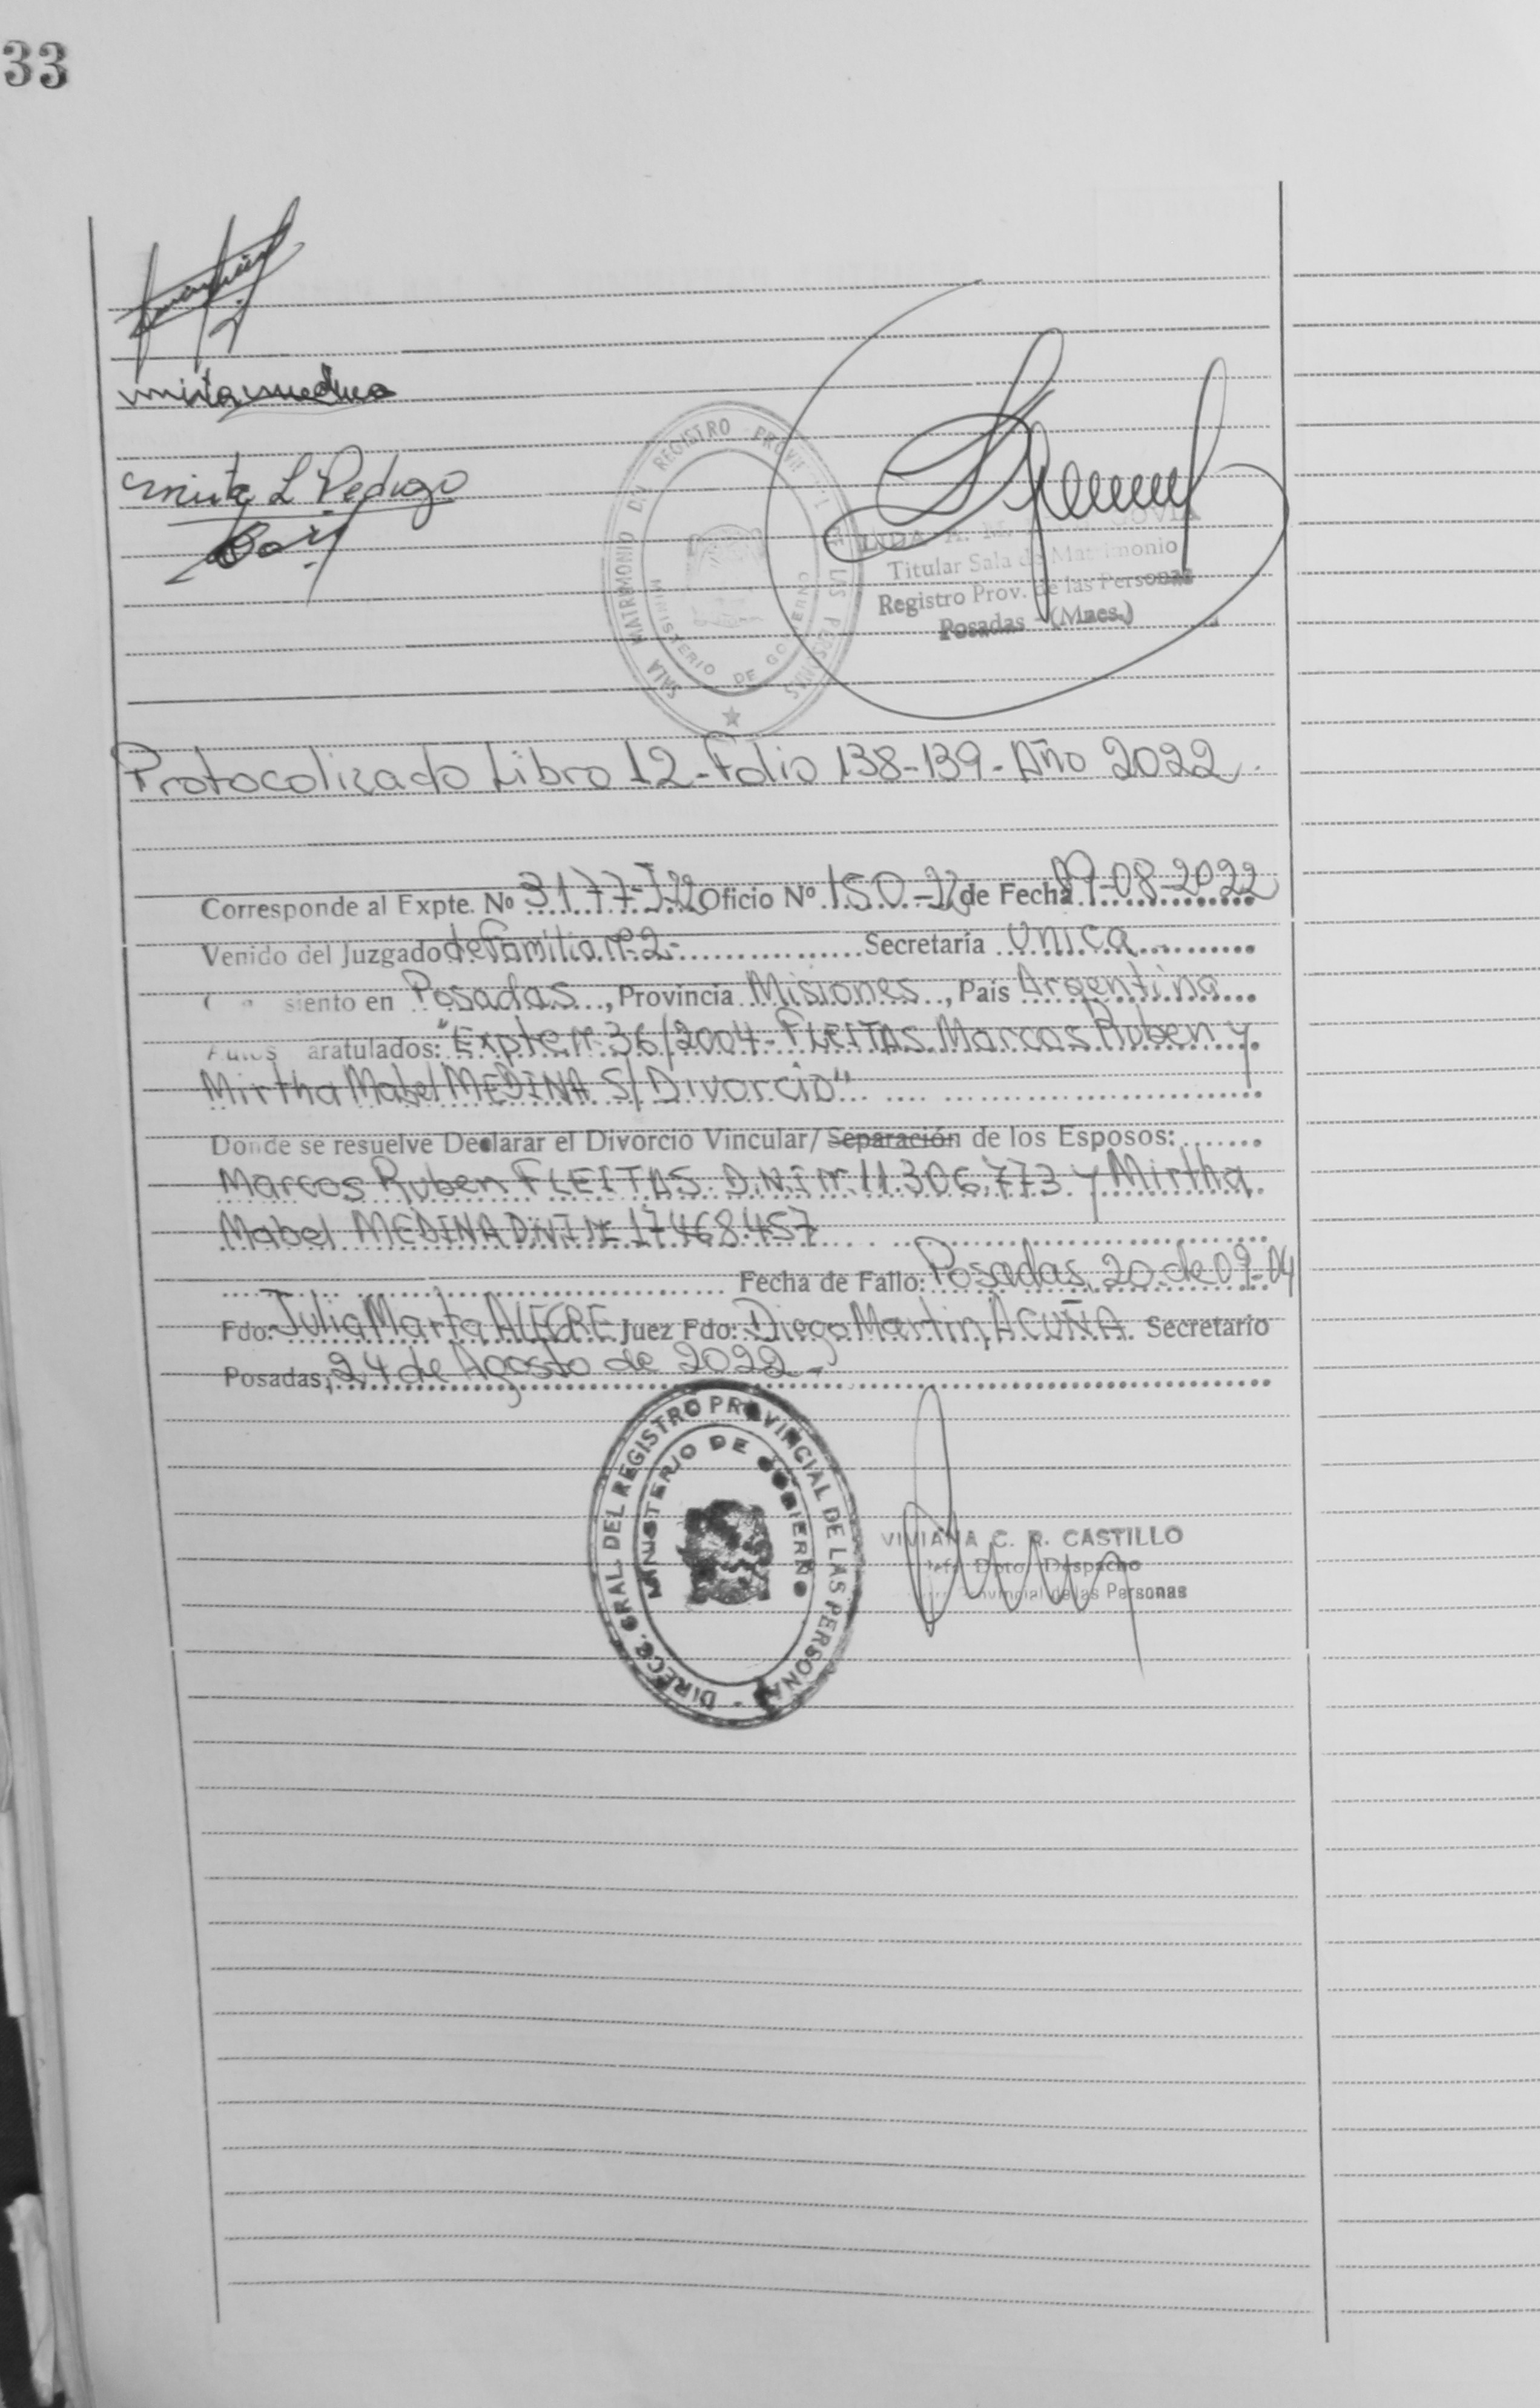 33
mirta medina
Mirta L Pedrozo
SALA MATRIMONIO D.V REGISTRO PROVINCIAL DE LAS PERSONAS
MINISTERIO DE GOBIERNO
LIDA A. M.
Titular Sala de Matrimonio
Registro Prov. de las Personas
Posadas - (Mnes.)
Protocolizado Libro 12-Folio 138-139-Año 2022.
Corresponde al Expte. Nº 3177-I-22 Oficio Nº 150-22 de Fecha 09-08-2022
Venido del Juzgado de Familia nº 2- Secretaría Unica
siento en Posadas, Provincia Misiones, País Argentina
Autos aratulados: "Expte nº 36/2004- FLEITAS Marcos Ruben y
Mirtha Mabel MEDINA S/ Divorcio"
Donde se resuelve Declarar el Divorcio Vincular/ Separación de los Esposos:
Marcos Ruben FLEITAS D.N.I nº 11.306.773 y Mirtha
Mabel MEDINA D.N.I Nº 17.468.457
Fecha de Fallo: Posadas, 20 de 09-04
Fdo: Julia Marta ALEGRE Juez Fdo: Diego Martin ACUÑA. Secretario
Posadas, 24 de Agosto de 2022-
DIREC. GRAL. DEL REGISTRO PROVINCIAL DE LAS PERSONAS -
MINISTERIO DE GOBIERNO
VIVIANA C. R. CASTILLO
Jefe Dpto. Despacho
Provincial de las Personas